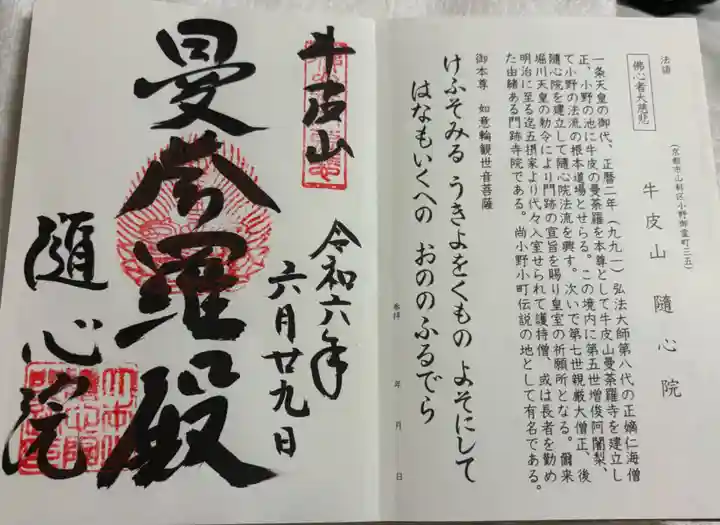 法語
佛心者大慈悲
(京都市山科区小野御霊町三五)
牛皮山 隨心院
一条天皇の御代、正暦二年(九九一)弘法大師第八代の正嫡仁海僧
正、小野の池に牛皮の曼荼羅を本尊として牛皮山曼荼羅寺を建立し
て小野の法流の根本道場とせらる。この境内に第五世増俊阿闍梨、
隨心院を建立して隨心院法流を興す。次いで第七世親厳大僧正、後
堀川天皇の勅令により門跡の宣旨を賜り皇室の祈願所となる。爾来
明治に至る迄五摂家より代々入室せられて護持僧、或は長者を勤め
た由緒ある門跡寺院である。尚小野小町伝説の地として有名である。
御本尊 如意輪観世音菩薩
けふそみる うきよをくもの よそにして
はなもいくへの おののふるでら
参拝 年 月 日
牛皮山
令和六年
六月廿九日
曼荼羅殿
隨心院